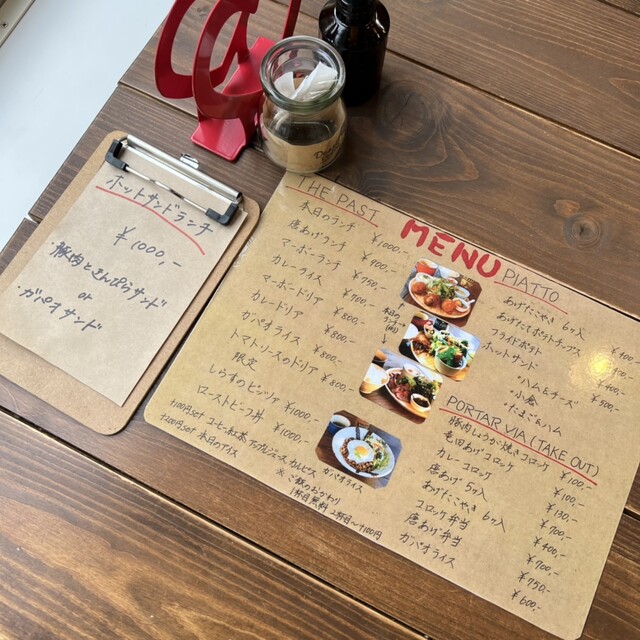 ホットサンドランチ
¥1000,-
・豚肉ときんぴらサンド
or
・ガパオサンド
MENU
THE PAST
本日のランチ ¥1000,-
唐あげランチ ¥900,-
マーボーランチ ¥950,-
カレーライス ¥700,-
マーボードリア ¥800,-
カレードリア ¥800,-
ガパオライス ¥800,-
トマトソースのドリア ¥800,-
限定
しらすのピッツァ ¥1000,-
ローストビーフ丼 ¥1000,-
+100円set コーヒー 紅茶 アップルジュース カルピス
+100円set 本日のアイス
ガパオライス
※ご飯のおかわり
1杯目無料 2杯目〜+100円
PIATTO
あげたこやき 6ヶ入
あげたてポテトチップス
フライドポテト
ホットサンド
・ハムとチーズ
・小倉
・たまごハム
¥500,-
PORTAR VIA (TAKE OUT)
豚肉しょうが焼きコロッケ ¥100,-
竜田あげコロッケ ¥100,-
カレーコロッケ ¥130,-
唐あげ 5ヶ入 ¥700,-
あげたこやき 6ヶ入 ¥400,-
コロッケ弁当 ¥700,-
唐あげ弁当 ¥750,-
ガパオライス ¥600,-